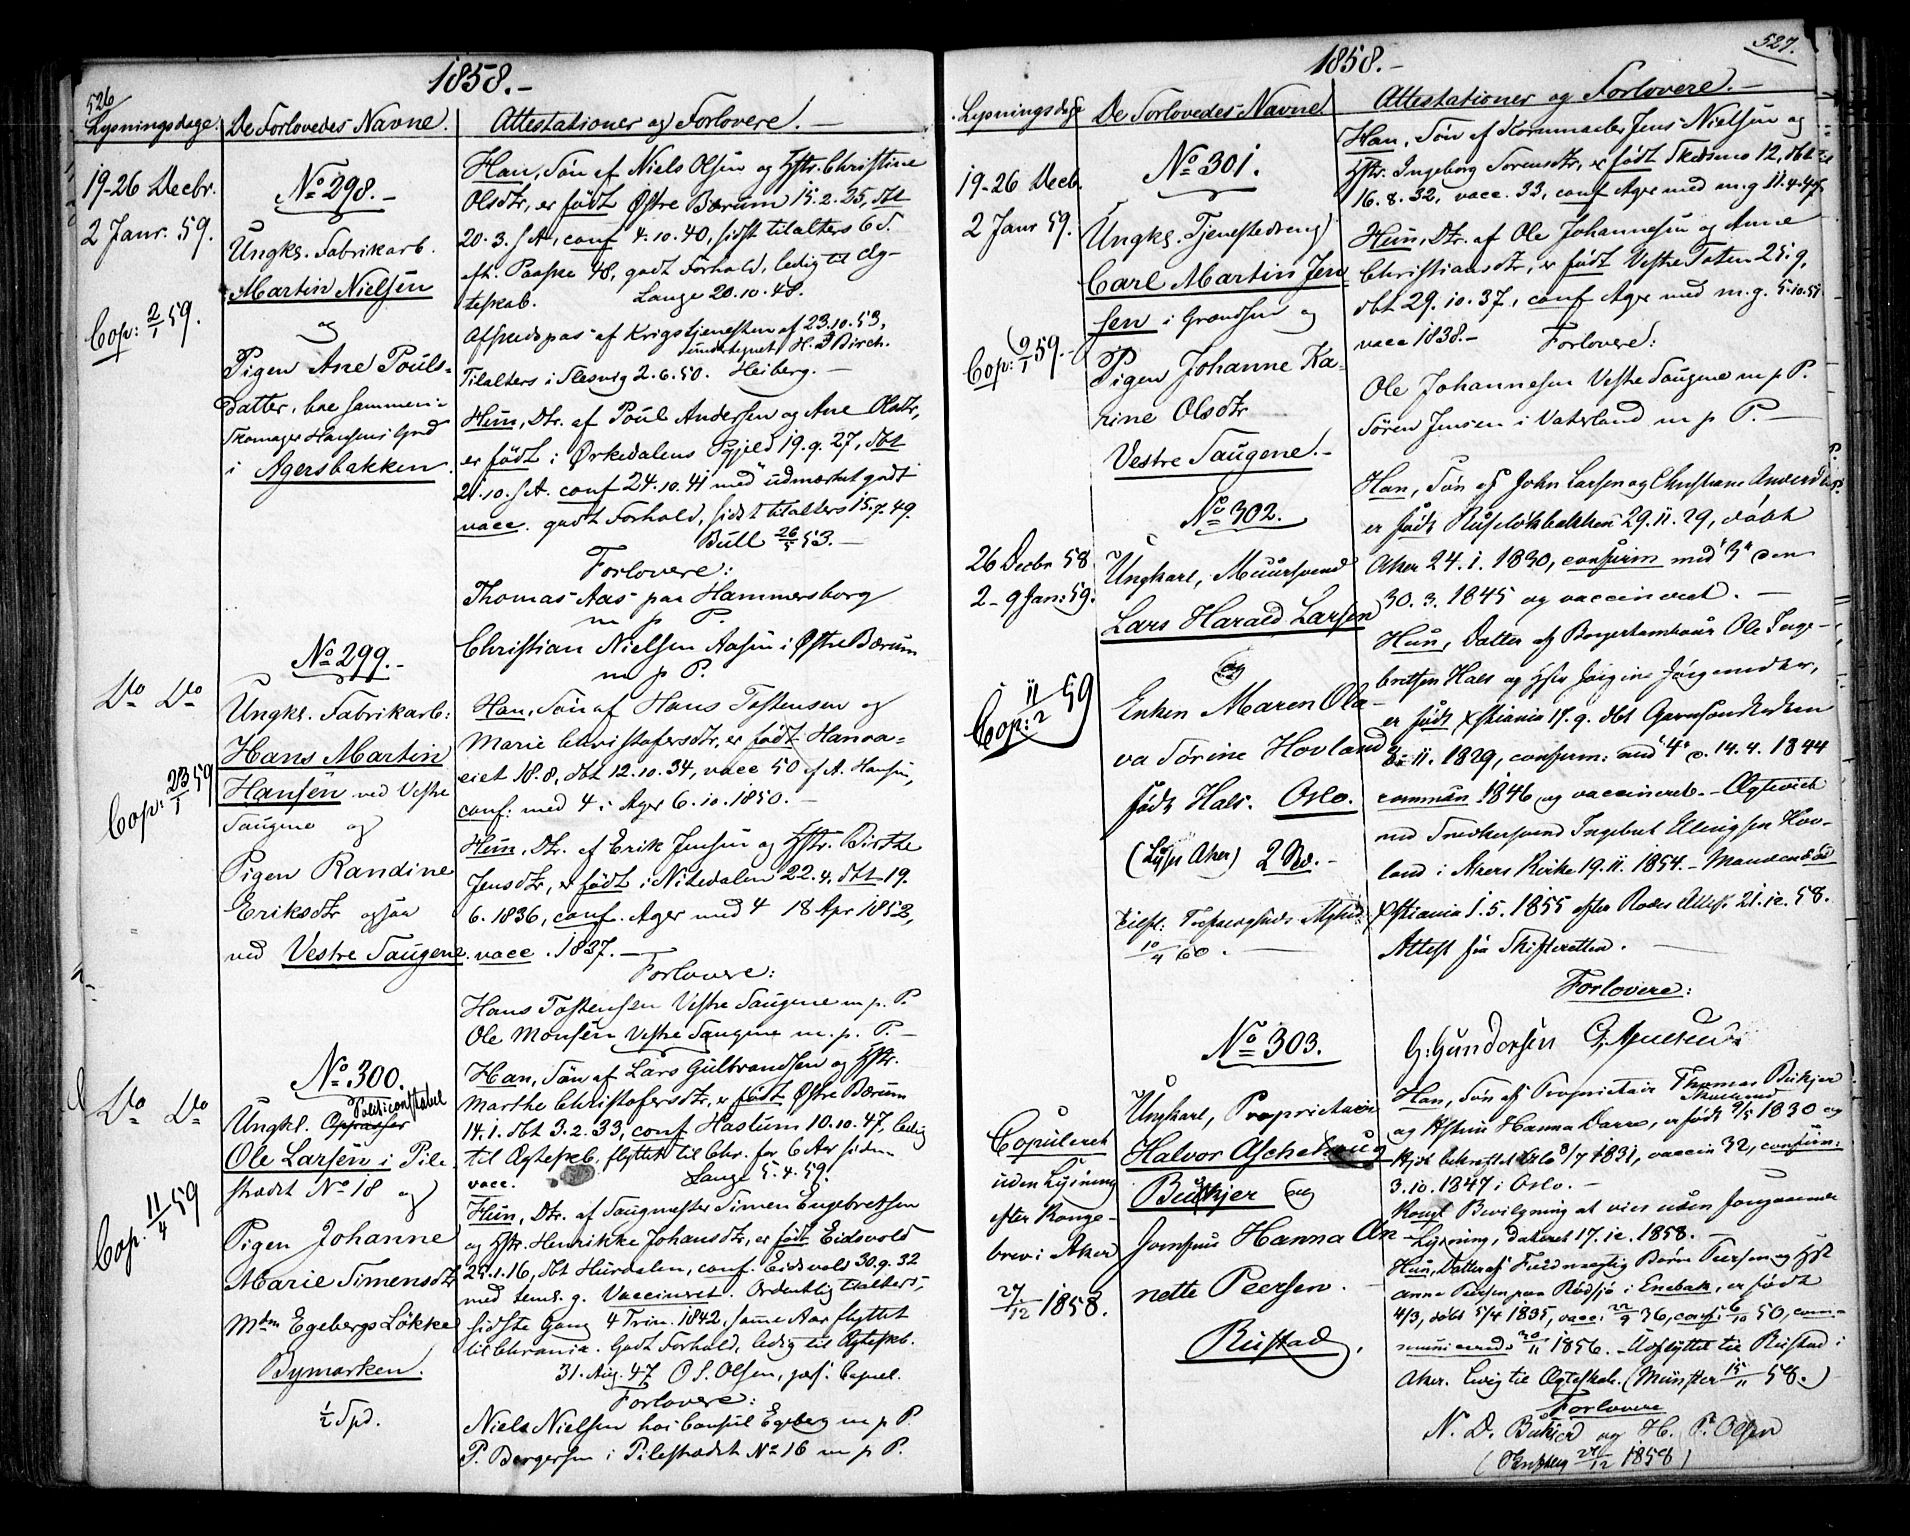 526
1858.-
Lysningsdage. De Forlovedes Navne. Attestationer og Forlovere. —
19-26 Decbr.
2 Janr. 59.
Cop: 2/1 59.
No 298.-
Ungk. Fabrikarb.
Martin Nielsen
og
Pigen Ane Pouls-
datter, boe sammen i
Skomager Hansens Grd
i Agersbakken.
Han, Søn af Niels Olsen og Hstr. Christine
Olsdtr, er født Østre Bærum 15.2.25, dbt
20.3. s A, conf 4.10.40, sidst tilalters 6 S.
eft. Paaske 48, godt Forhold, ledig til Æg-
teskab. Lange 20.10.48.
Afskedspas af Krigstjenesten af 23.10.53,
undertegnet H. Birch.
Tilalters i Slesvig 2.6.50. Heiberg. —
Hun, Dtr. af Poul Andersen og Ane Olsdtr,
er født i Ørkedalens Pgjeld 19.9.27, dbt
21.10. s A. conf 24.10.41 med udmærket godt
vacc. godt Forhold, sidst tilalters 15.7.49.
Bull 26/5 53. —
Forlovere:
Thomas Aas paa Hammersborg
m p P.
Christian Nielsen Aasen i Østre Bærum
m p P.
Do Do
Cop: 23/1 59
No 299.-
Ungk. Fabrikarb:
Hans Martin
Hansen ved Vestre
Saugene og
Pigen Randine
Eriksdtr ogsaa
ved Vestre Saugene.
Han, Søn af Hans Tostensen og
Marie Christofersdtr, er født Hanna-
eiet 18.8, dbt 12.10.34, vacc 50 af A. Hansen,
conf: med 4 i Ager 6.10.1850. —
Hun, Dtr. af Erik Jensen og Hstr. Birthe
Jensdtr, er født i Nitedalen 22.4, dbt 19.
6.1836, conf. Ager med 4 18 Apr 1852,
vacc. 1837. —
Forlovere:
Hans Tostensen Vestre Saugene m. p. P.
Ole Monsen Vestre Saugene m. p. P. —
Do Do
Cop. 11/4 59
No 300.
Politiconstabel
Ungkl. Oppasser
Ole Larsen i Pile
strædet No 18 og
Pigen Johanne
Marie Simensdtr
Mdm Egebergs Løkke
Bymarken.
1/2 Spd.
Han, Søn af Lars Gulbrandsen og Hstr.
Marthe Christofersdtr, er født Østre Bærum
14.1. dbt 3.2.33, conf Haslum 10.10.47, ledig
til Ægteskb. flyttet til Chr. for 6 Aar siden
vacc. Lange 5.4.59.
Hun, Dtr. af Saugmester Simen Engebretsen
og Hstr. Henrikke Johansdtr, er født Eidsvold
25.1.16, dbt Hurdalen, conf. Eidsvold 30.9.32
med teml. g. Vaccineret. Ordentlig tilalters,
sidste Gang 4 Trin. 1842, samme Aar flyttet
til Chrania. Godt Forhold, ledig til Ægteskb.
31. Aug. 47 O S. Olsen, pers: Capel.
Forlovere:
Niels Nielsen hos Consul Egeberg m p P.
P. Bergersen i Pilestrædet No 16 m p P.
527.
1858.-
Lysningsdage De Forlovedes Navne. Attestationer og Forlovere. —
19-26 Decb.
2 Janr 59.
Cop: 9/1 59.-
No 301.
Ungk. Tjenestedreng
Carl Martin Jen-
sen i Grændsen og
Pigen Johanne Ka-
rine Olsdtr
Vestre Saugene.-
Han, Søn af Kornmaaler Jens Nielsen og
Hstr. Ingeborg Sørensdtr, er født Skedsmo 12, dbt
16.8.32, vacc. 33, conf Agre med m.g 11.4.47
Hun, Dtr. af Ole Johannesen og Anne
Christiansdtr, er født Vestre Toten 25.9,
dbt 29.10.37, conf Ager med m.g. 5.10.51
vacc 1838.- Forlovere:
Ole Johannesen Vestre Saugene m p P.
Sören Jensen i Vaterland m p P. —
26 Decbr 58
2-9 Jan: 59.
Cop: 11/2 59
No 302.
Ungkarl, Muursvend
Lars Harald Larsen
og
Enken Maren Ola-
va Sørine Hovland
født Hals. Oslo.
(Lyser Aker) 2 Rd.-
10/4 60.
Han, Søn af John Larsen og Christiane Andersd
er født Ruseløkbakken 29.11.29, døbt
Aker 24.1.1830, confirm med "3" den
30.3.1845 og vaccineret. —
Hun, Datter af Borgertambour Ole Inge-
bretsen Hals og Hstr Jørgine Jørgensdtr,
er født Xstiania 15.9. dbt Garnisonskirken
8.11.1829, confirm: med "4" d. 14.4.1844
commun 1846 og vaccineret. — Ægteviet
med Snedkersvend Ingebret Ellingsen Hov-
land i Akers Kirke 19.11.1854. — Manden død
Xstiania 1.5.1855 efter Rodes Attest. 21.12.58.
Attest fra Skifteretten. —
Forlovere:
G: Gundersen
Copuleret
uden Lysning
efter Konge-
brev i Aker
27/12 1858.
No 303.
Ungkarl, Proprietair
Halvor Aschehoug
Butkjer og
Jomfru Hanna An-
nette Peersen.
Rustad,
Han, Søn af Proprietair Thomas Butkjer
og Hstru Hanna Darre, er født 9/5 1830 og
hjdt bekræftet Oslo 8/7 1831, vaccin 32, confirm:
3.10.1847 i Oslo. —
Kongl Bevilgning at vies uden foregaaende
Lysning, dateret 17.12.1858. —
Hun, Datter af Fuldmægtig Børn Peersen og Hst
Anna Peersen paa Rødsjø i Enebak, er født
4/3, døbt 5/4 1835, vacc: 22/9 36, conf: 6/10 50, com-
municerede 30/11 1856. — Udflyttet til Rustad i
Aker. Ledig til Ægteskab. (Münster 15/11 58.)
Forlovere
N. D. Butkier og H. P. Olsen
27/12 1858)